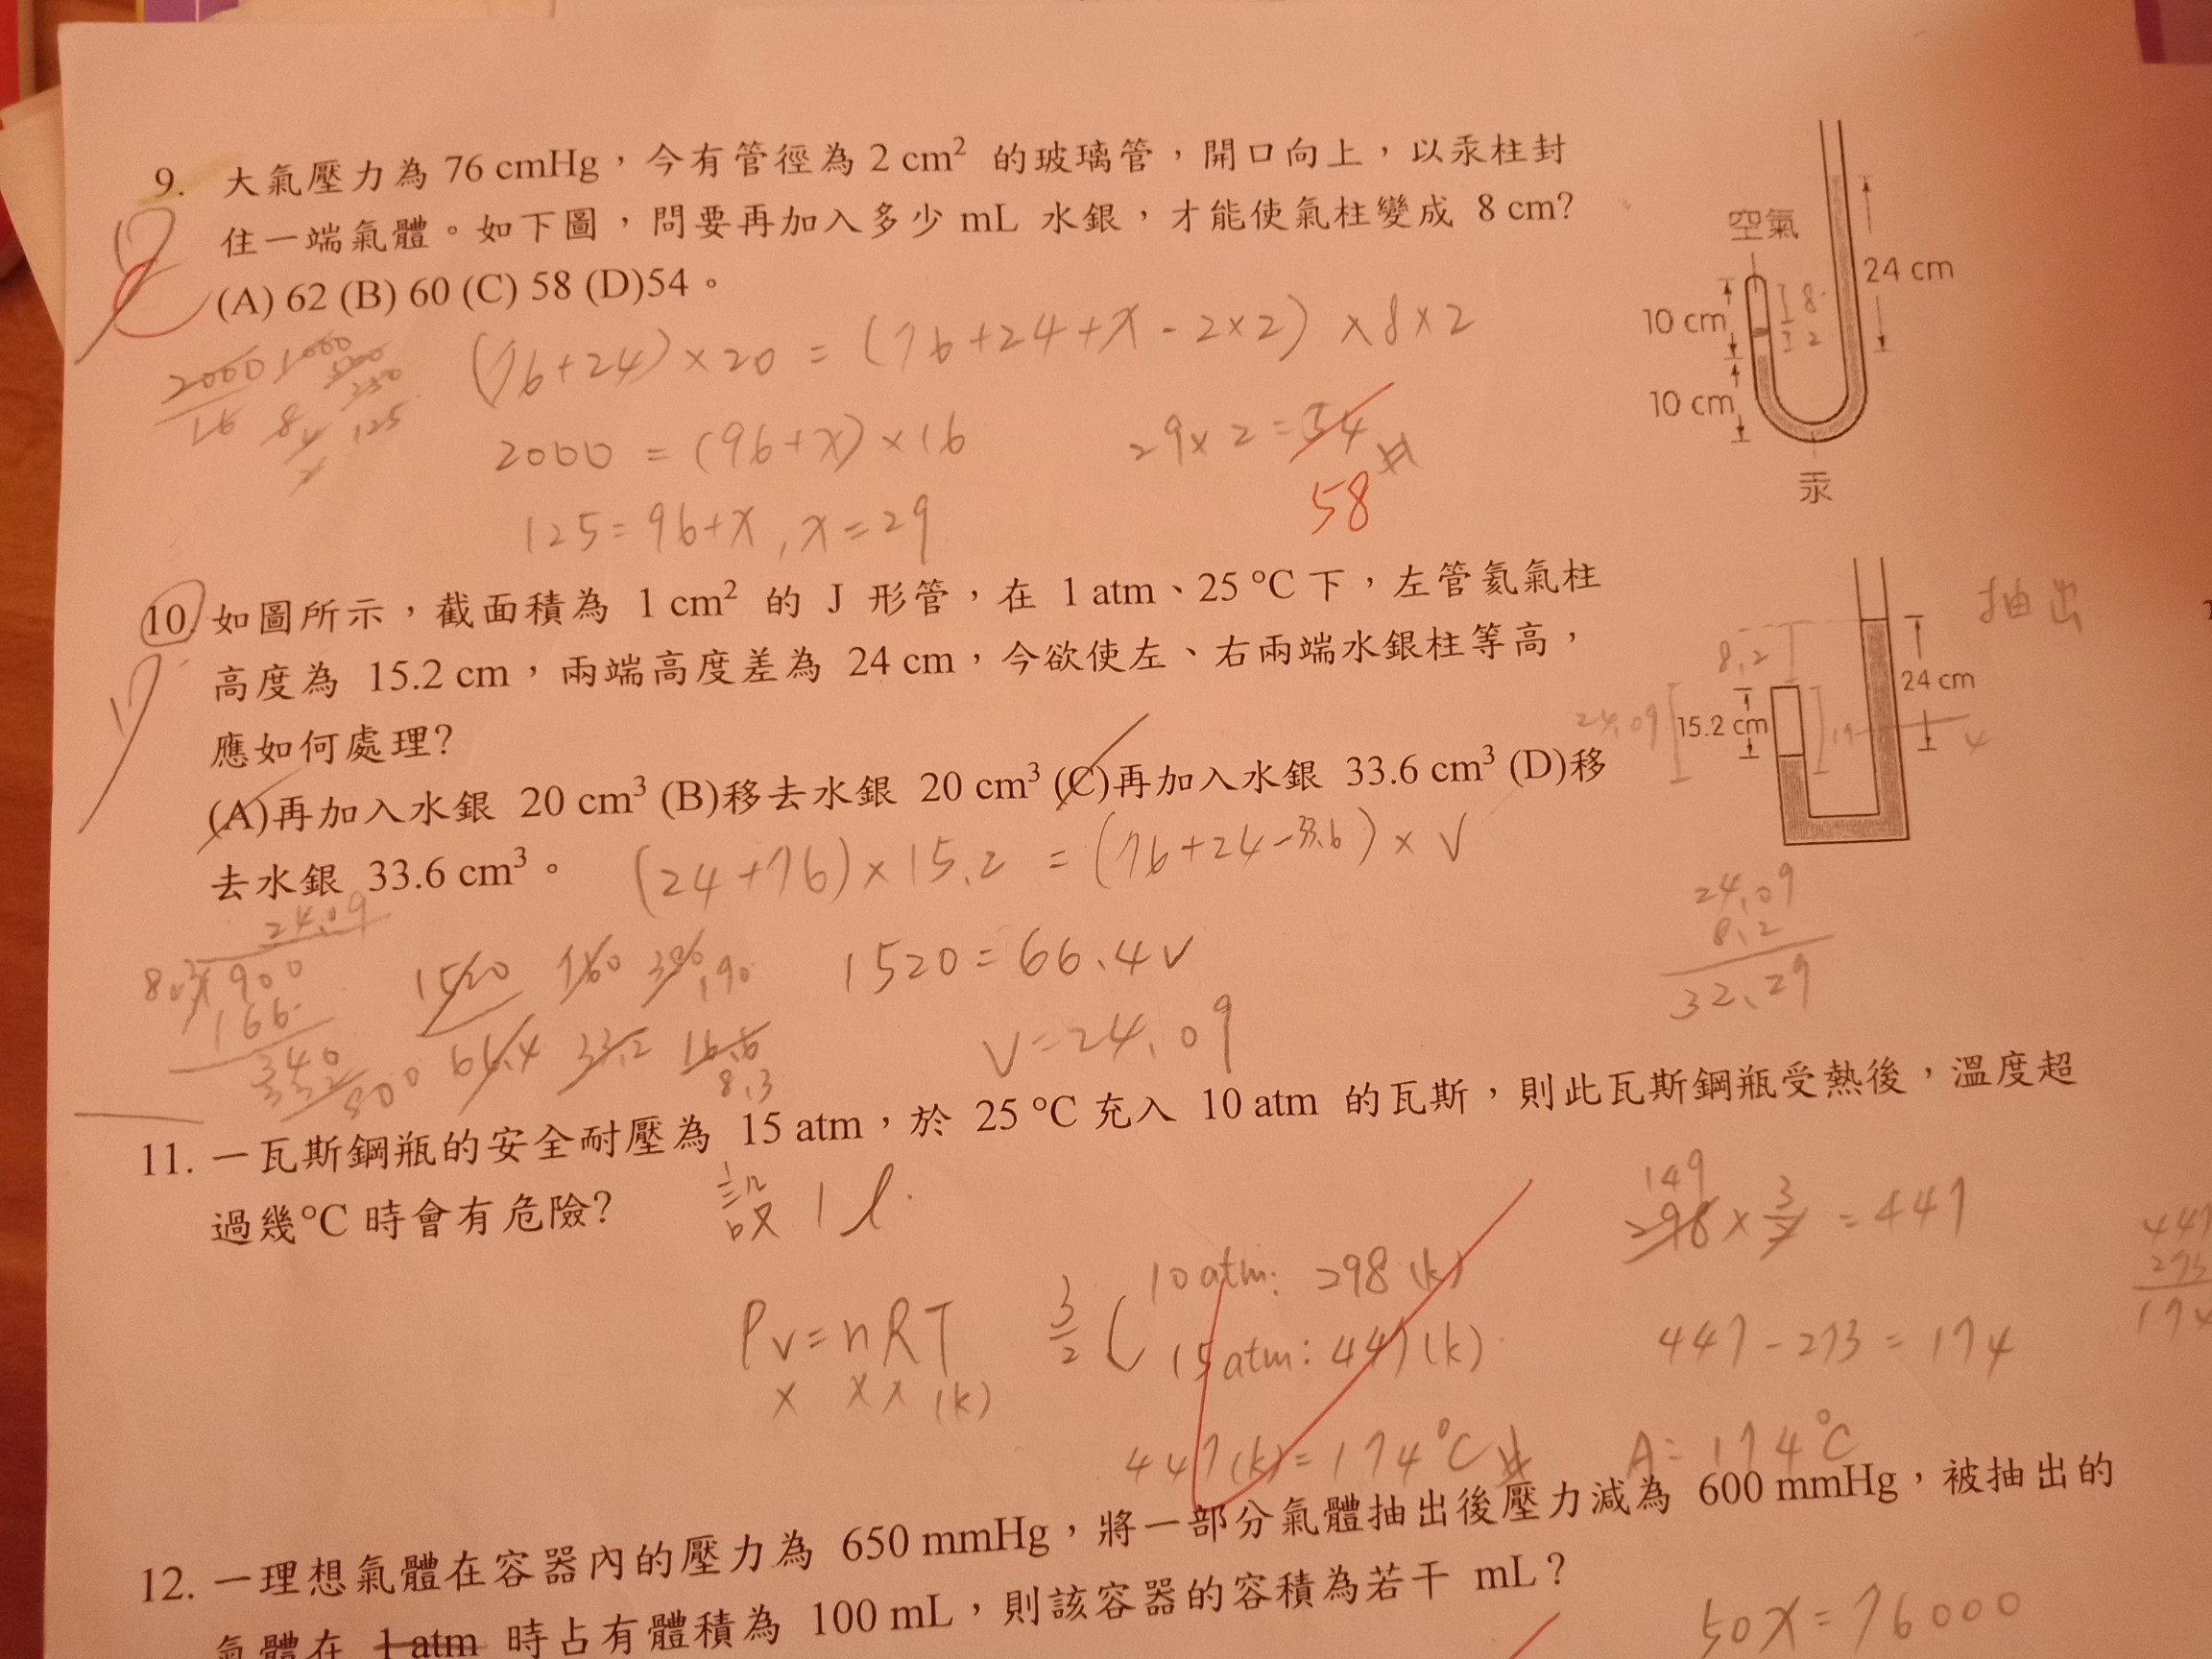 9. 大氣壓力為 76 cmHg，今有管徑為 2 cm² 的玻璃管，開口向上，以汞柱封
住一端氣體。如下圖，問要再加入多少 mL 水銀，才能使氣柱變成 8 cm?
(A) 62 (B) 60 (C) 58 (D)54。
空氣
24 cm
10 cm
8
2
10 cm
汞
(76+24)×20 = (76+24+x-2×2)×8×2
2000 = (96+x)×16
29×2=54
58
125=96+x, x=29
10. 如圖所示，截面積為 1 cm² 的 J 形管，在 1 atm、25 °C 下，左管氦氣柱
高度為 15.2 cm，兩端高度差為 24 cm，今欲使左、右兩端水銀柱等高，
應如何處理?
(A)再加入水銀 20 cm³ (B)移去水銀 20 cm³ (C)再加入水銀 33.6 cm³ (D)移
去水銀 33.6 cm³。
抽出
8.2
24 cm
24.09
15.2 cm
(24+76)×15.2 = (76+24-33.6)×V
1520=66.4V
V=24.09
24.09
8.2
32.29
11. 一瓦斯鋼瓶的安全耐壓為 15 atm，於 25 °C 充入 10 atm 的瓦斯，則此瓦斯鋼瓶受熱後，溫度超
過幾°C 時會有危險?
設 1 l.
149
298×3/2=447
PV=nRT
3/2
10 atm: 298 (k)
15 atm: 447 (k)
(k)
447-273=174
447
273
174
447(k)=174°C
A: 174°C
12. 一理想氣體在容器內的壓力為 650 mmHg，將一部分氣體抽出後壓力減為 600 mmHg，被抽出的
氣體在 1 atm 時占有體積為 100 mL，則該容器的容積為若干 mL？
50X=76000